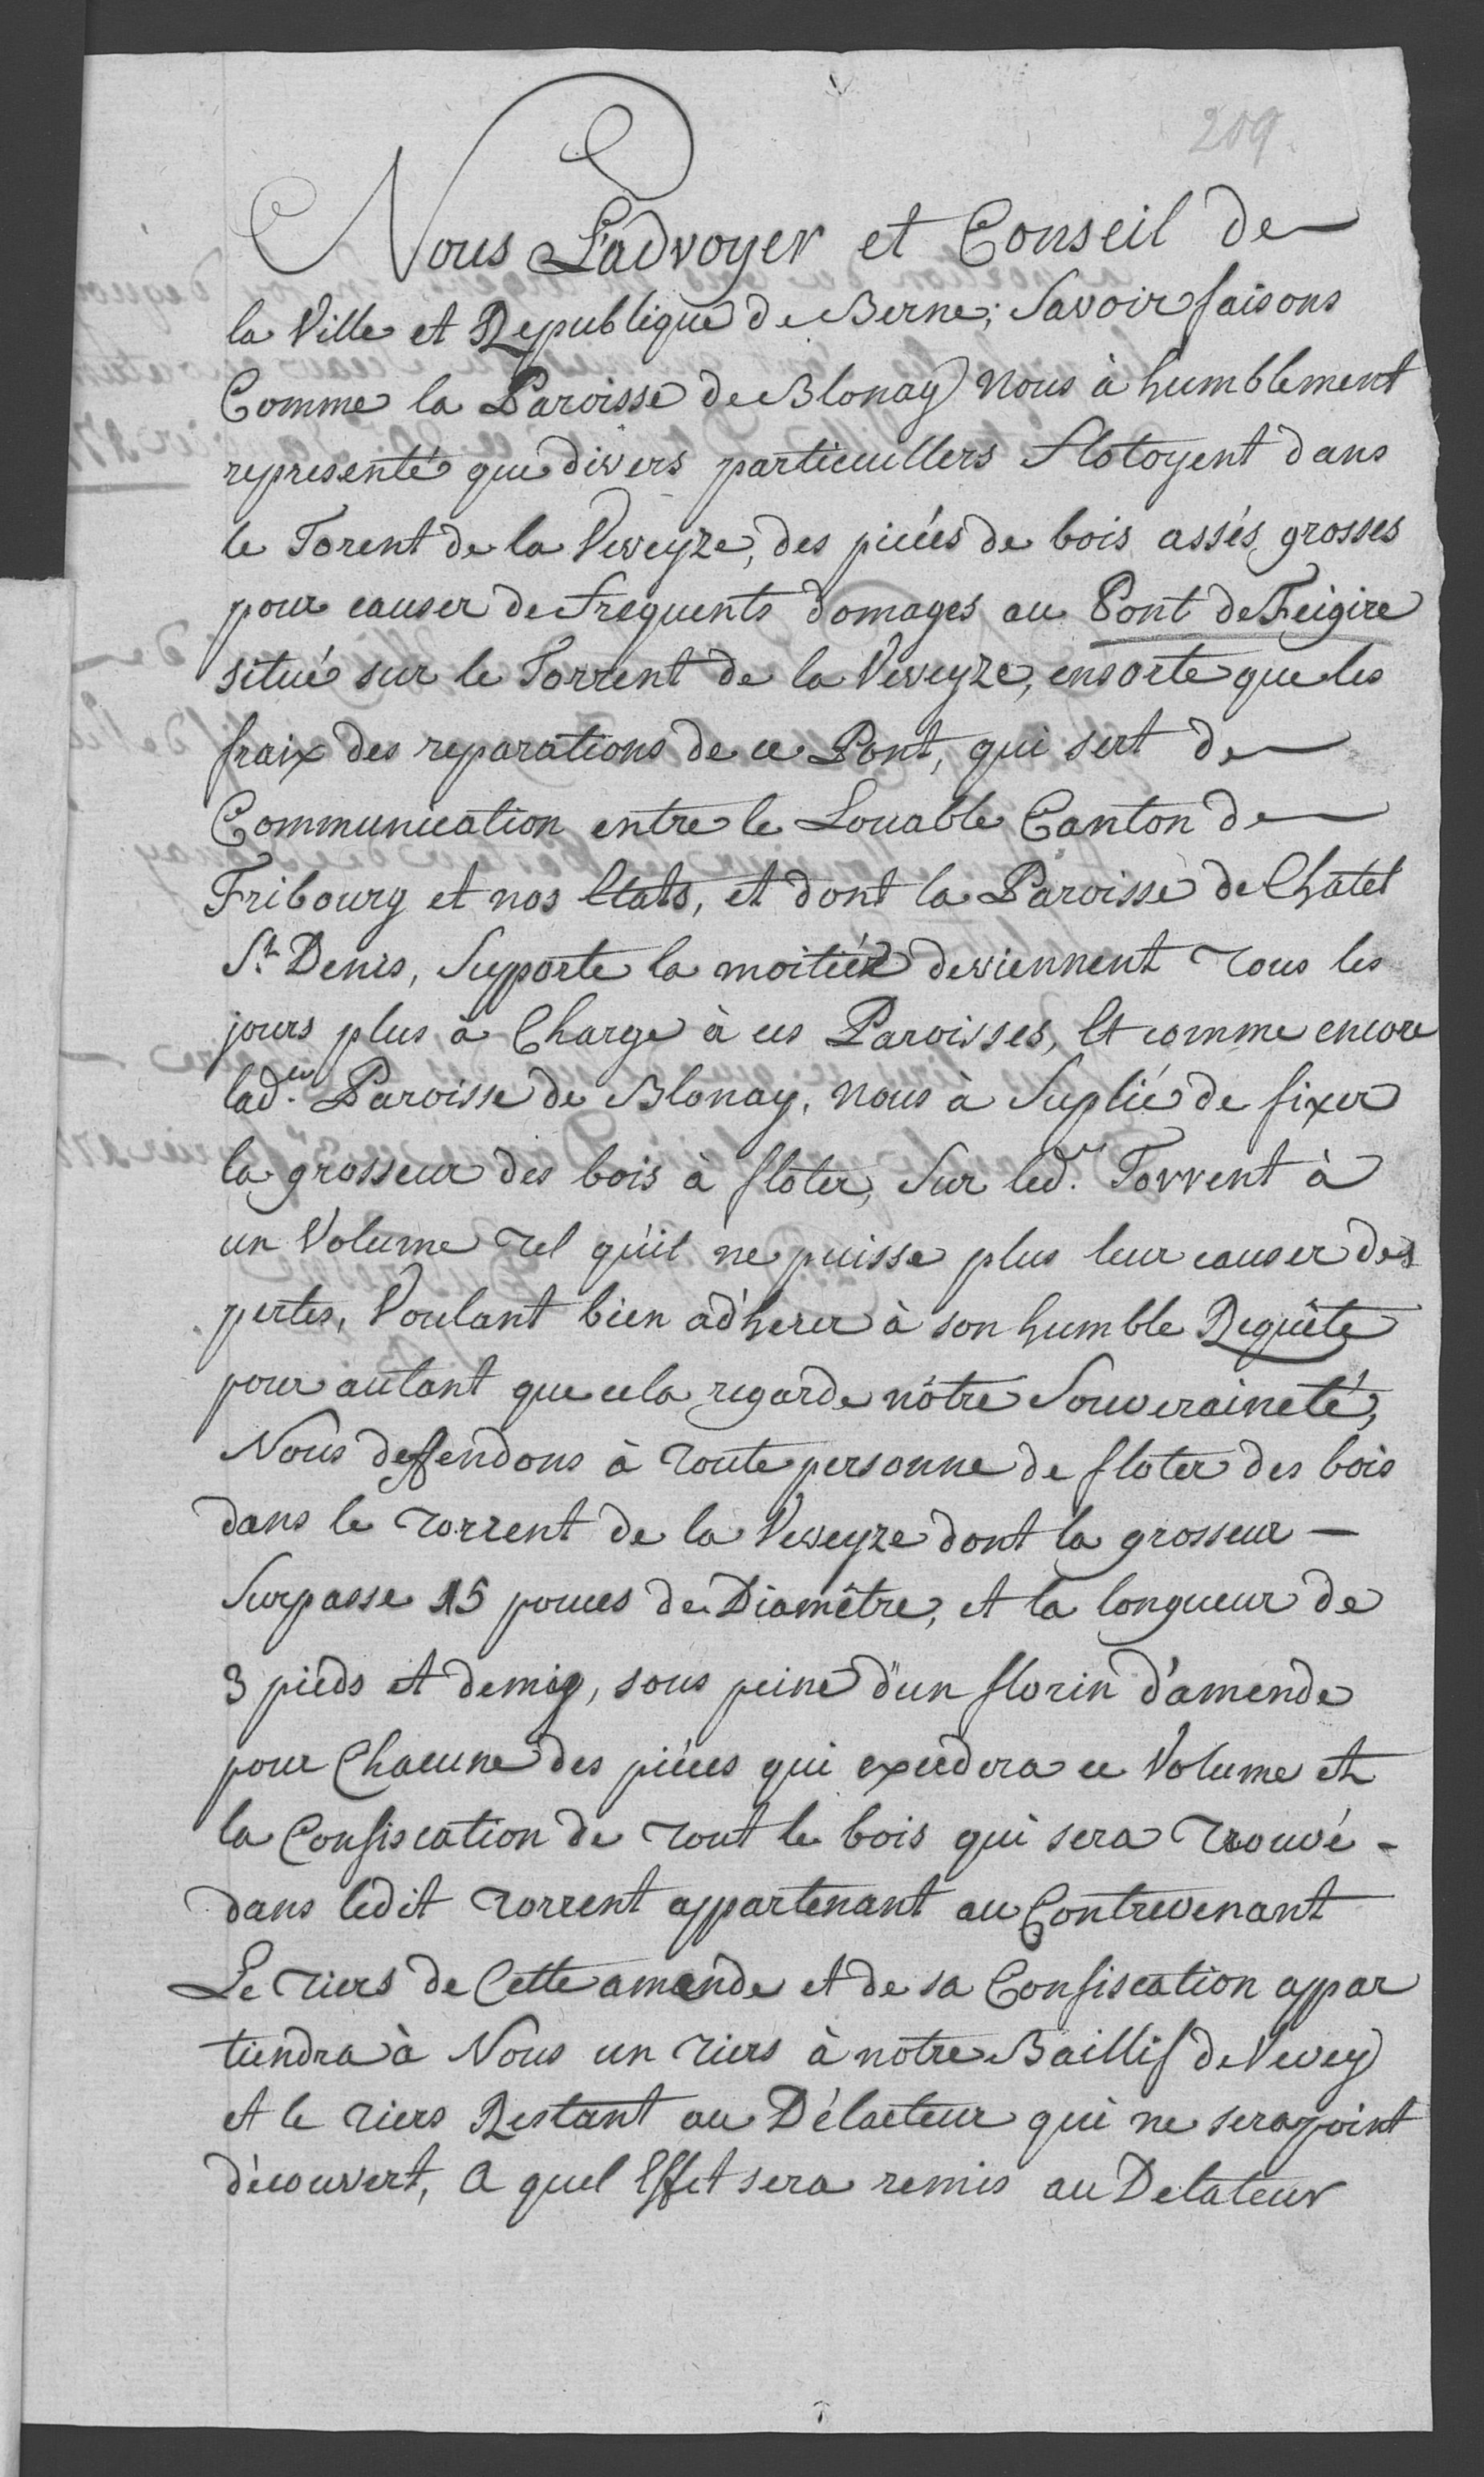 209.
Nous L'advoyer et Conseil de
la Ville et Republique de Berne; Savoir faisons
Comme la Paroisse de Blonay nous à humblement
representé que divers particuillers flotoyent dans
le Torent de la Veveyze, des piéces de bois assés grosses
pour causer de frequents domages au Pont de Feigire
situé sur le Torrent de la Veveyze, ensorte que les
fraix des reparations de ce Pont, qui sert de
Communication entre le Louable Canton de
Fribourg et nos Etats, et dont la Paroisse de Châtel
St. Denis, Supporte la moitiéz deviennent tous les
jours plus à Charge à ces Paroisses, Et comme encore
lad.te Paroisse de Blonay, nous à Suplié de fixer
la grosseur des bois à floter, Sur led.t Torrent à
un Volume tel qu'il ne puisse plus leur causer des
pertes, Voulant bien adherer à son humble Requête
pour autant que cela regarde nôtre Souveraineté,
Nous deffendons à toute personne de floter des bois
dans le torrent de la Veveyze dont la grosseur
Surpasse 15 pouces de Diamêtre, et la longueur de
3 pieds et demig, sous peine d'un florin d'amende
pour Chacune des piéces qui excedera ce Volume et
la Confiscation de tout le bois qui sera trouvé
dans ledit torrent appartenant au Contrevenant
Le tiers de Cette amende et de sa Confiscation appar
tiendra à Nous un tiers à notre Baillif de Vevey
et le tiers Restant au Délacteur qui ne sera point
découvert, A quel Effet sera remis au Delateur